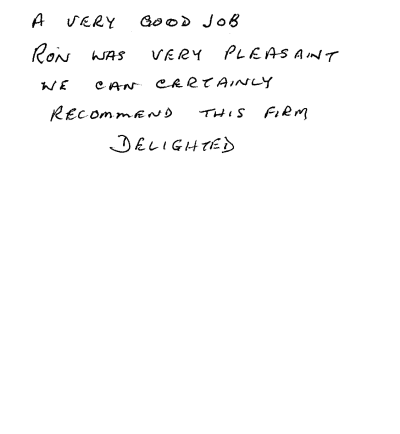 A VERY GOOD JOB
RON WAS VERY PLEASAINT
WE CAN CERTAINLY
RECOMMEND THIS FIRM
DELIGHTED